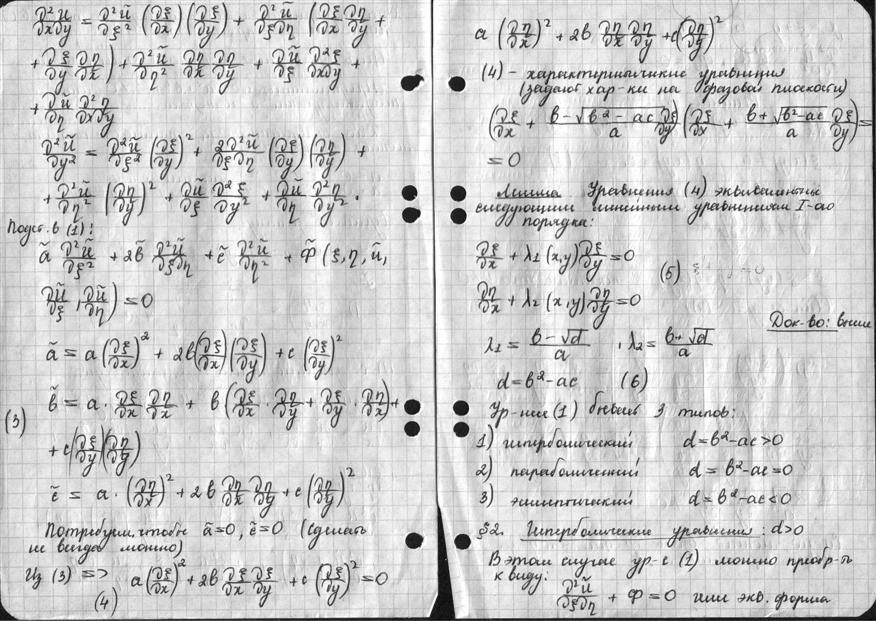 ∂²u/∂x∂y = ∂²ũ/∂ξ² (∂ξ/∂x)(∂ξ/∂y) + ∂²ũ/∂ξ∂η (∂ξ/∂x ∂η/∂y +
+ ∂ξ/∂y ∂η/∂x) + ∂²ũ/∂η² ∂η/∂x ∂η/∂y + ∂ũ/∂ξ ∂²ξ/∂x∂y +
+ ∂ũ/∂η ∂²η/∂x∂y
∂²ũ/∂y² = ∂²ũ/∂ξ² (∂ξ/∂y)² + 2∂²ũ/∂ξ∂η (∂ξ/∂y)(∂η/∂y) +
+ ∂²ũ/∂η² (∂η/∂y)² + ∂ũ/∂ξ ∂²ξ/∂y² + ∂ũ/∂η ∂²η/∂y².
Подст. в (1):
ã ∂²ũ/∂ξ² + 2b̃ ∂²ũ/∂ξ∂η + c̃ ∂²ũ/∂η² + Φ̃ (ξ, η, ũ,
∂ũ/∂ξ, ∂ũ/∂η) = 0
ã = a(∂ξ/∂x)² + 2b(∂ξ/∂x)(∂ξ/∂y) + c(∂ξ/∂y)²
(3) b̃ = a · ∂ξ/∂x ∂η/∂x + b(∂ξ/∂x · ∂η/∂y + ∂ξ/∂y · ∂η/∂x) +
+ c(∂ξ/∂y)(∂η/∂y)
c̃ = a · (∂η/∂x)² + 2b ∂η/∂x ∂η/∂y + c(∂η/∂y)²
Потребуем, чтобы ã=0, c̃=0 (сделать
не всегда можно)
Из (3) => a(∂ξ/∂x)² + 2b ∂ξ/∂x ∂ξ/∂y + c(∂ξ/∂y)² = 0
(4)
a(∂η/∂x)² + 2b ∂η/∂x ∂η/∂y + c(∂η/∂y)²
(4) - характеристические уравнения
(задают хар-ки на фазовой плоскости)
(∂ξ/∂x + b-√b²-ac/a ∂ξ/∂y)(∂ξ/∂x + b+√b²-ac/a ∂ξ/∂y) =
= 0
Лемма Уравнения (4) эквивалентны
следующим линейным уравнениям I-го
порядка:
∂ξ/∂x + λ₁(x,y) ∂ξ/∂y = 0
(5)
∂η/∂x + λ₂(x,y) ∂η/∂y = 0
Док-во: выше
λ₁ = b-√d/a, λ₂ = b+√d/a
d = b²-ac (6)
Ур-ния (1) бывают 3 типов:
1) гиперболический d=b²-ac>0
2) параболический d=b²-ac=0
3) эллиптический d=b²-ac<0
§2. Гиперболические уравнения: d>0
В этом случае ур-е (1) можно преобр-ть
к виду:
∂²ũ/∂ξ∂η + Φ = 0 или экв. форма